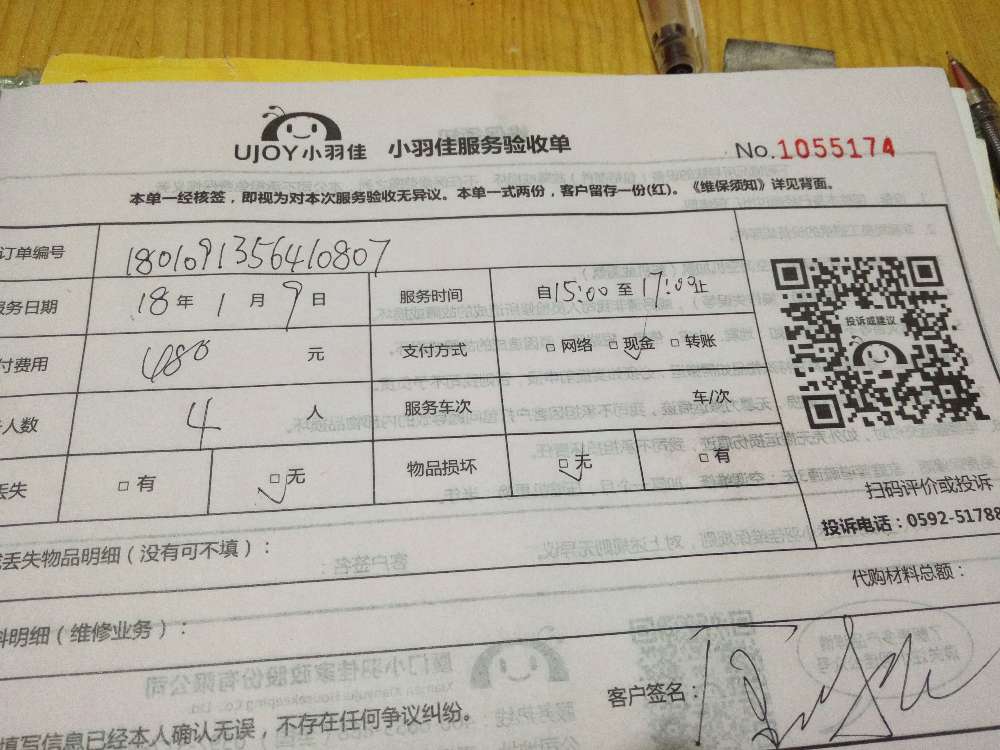 UJOY小羽佳 小羽佳服务验收单 No.1055174
本单一经核签，即视为对本次服务验收无异议。本单一式两份，客户留存一份(红)。《维保须知》详见背面。
订单编号 1801091356410807
服务日期 18 年 1 月 9 日 服务时间 自15:00 至 17:00止
付费用 480 元 支付方式 □ 网络 □ 现金 □ 转账
人数 4 人 服务车次 车/次
丢失 □ 有 □ 无 物品损坏 □ 无 □ 有
投诉或建议
扫码评价或投诉
投诉电话：0592-51788
丢失物品明细（没有可不填）：
代购材料总额：
料明细（维修业务）：
客户签名：
填写信息已经本人确认无误，不存在任何争议纠纷。